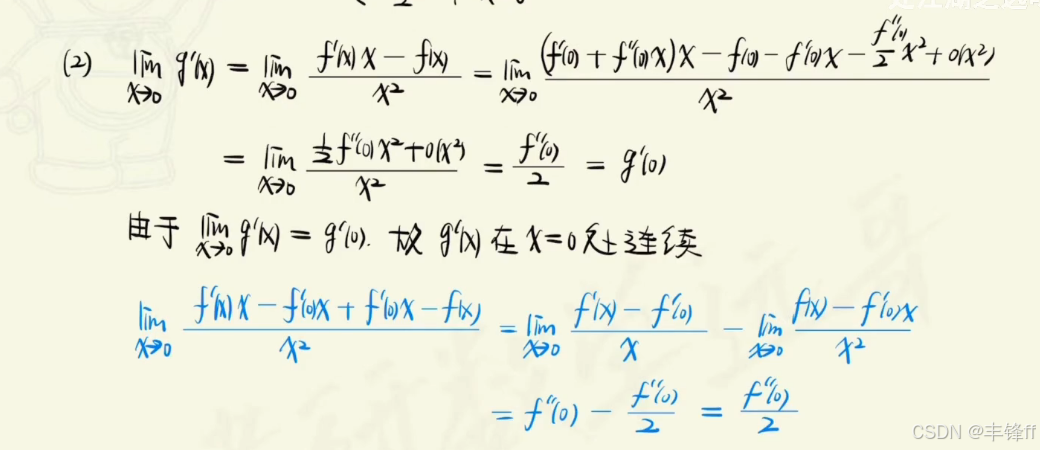 (2) lim_{x→0} g'(x) = lim_{x→0} \frac{f'(x)x - f(x)}{x^2} = lim_{x→0} \frac{(f'(0) + f''(0)x)x - f(0) - f'(0)x - \frac{f''(0)}{2}x^2 + o(x^2)}{x^2}
= lim_{x→0} \frac{\frac{1}{2}f''(0)x^2 + o(x^2)}{x^2} = \frac{f''(0)}{2} = g'(0)
由于 lim_{x→0} g'(x) = g'(0). 故 g'(x) 在 x=0 处连续
lim_{x→0} \frac{f'(x)x - f'(0)x + f'(0)x - f(x)}{x^2} = lim_{x→0} \frac{f'(x) - f'(0)}{x} - lim_{x→0} \frac{f(x) - f'(0)x}{x^2}
= f''(0) - \frac{f''(0)}{2} = \frac{f''(0)}{2}
CSDN @丰锋ff